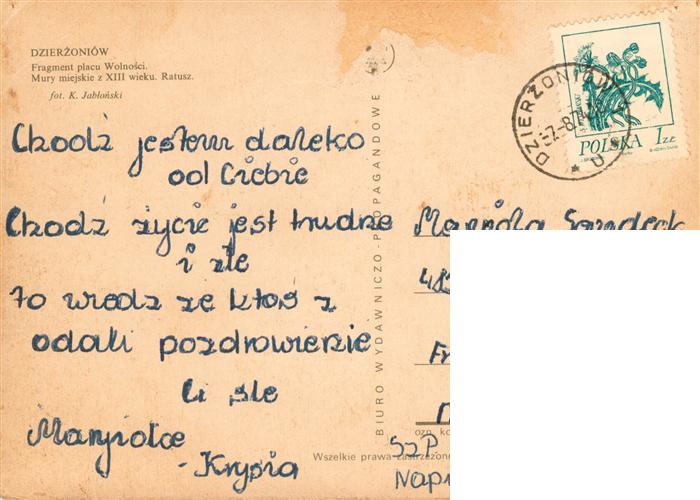 DZIERŻONIÓW
Fragment placu Wolności.
Mury miejskie z XIII wieku. Ratusz.
fot. K. Jabłoński
Chodź jestem daleko
od Ciebie
Chodź życie jest trudne
i złe
to wiedz że ktoś z
odali pozdrowienie
Ci śle
Maryiolce
- Krysia
BIURO WYDAWNICZO-PROPAGANDOWE
DZIERŻONIÓW
POLSKA 1 ZŁ
Mariola
Wszelkie prawa zastrzeżone